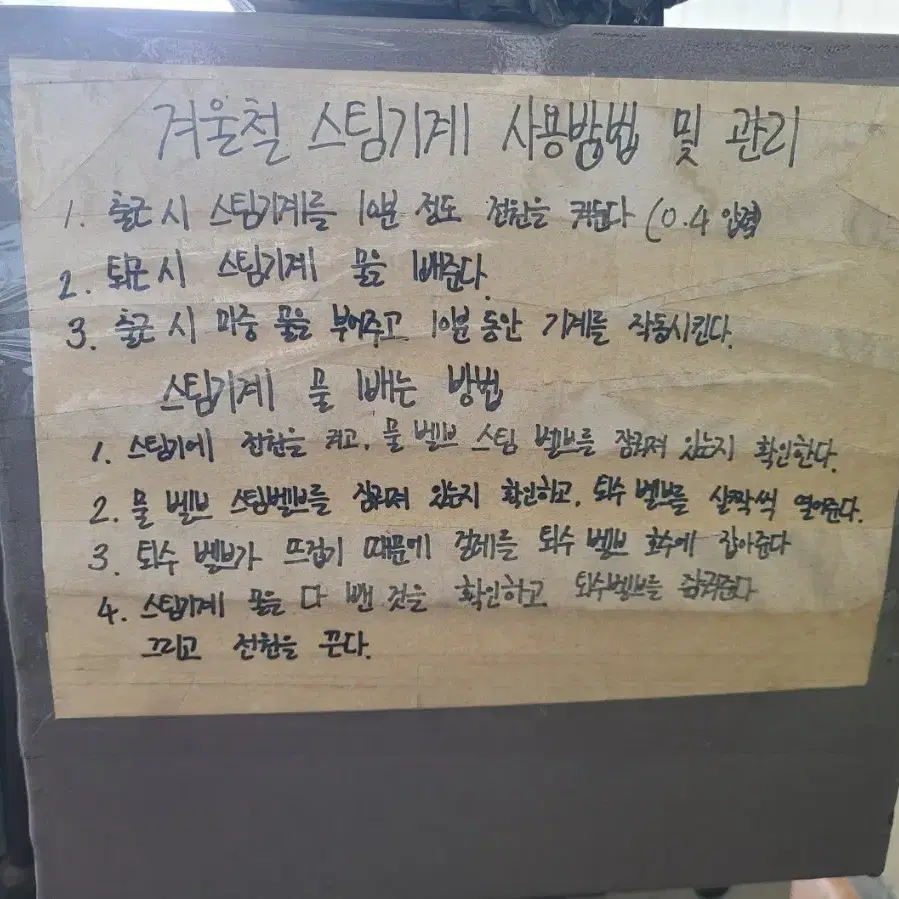 겨울철 스팀기계 사용방법 및 관리
1. 출근 시 스팀기계를 10분 정도 전원을 켜둔다 (0.4 압력)
2. 퇴근 시 스팀기계 물을 빼준다.
3. 출근 시 마중 물을 부어주고 10분 동안 기계를 작동시킨다.
스팀기계 물 빼는 방법
1. 스팀기에 전원을 켜고, 물 벨브 스팀 벨브를 잠궈져 있는지 확인한다.
2. 물 벨브 스팀벨브를 잠궈져 있는지 확인하고, 퇴수 벨브를 살짝씩 열어준다.
3. 퇴수 벨브가 뜨겁기 때문에 걸레를 퇴수 벨브 호수에 잡아준다
4. 스팀기계 물을 다 뺀 것을 확인하고 퇴수벨브를 잠궈준다
그리고 전원을 끈다.